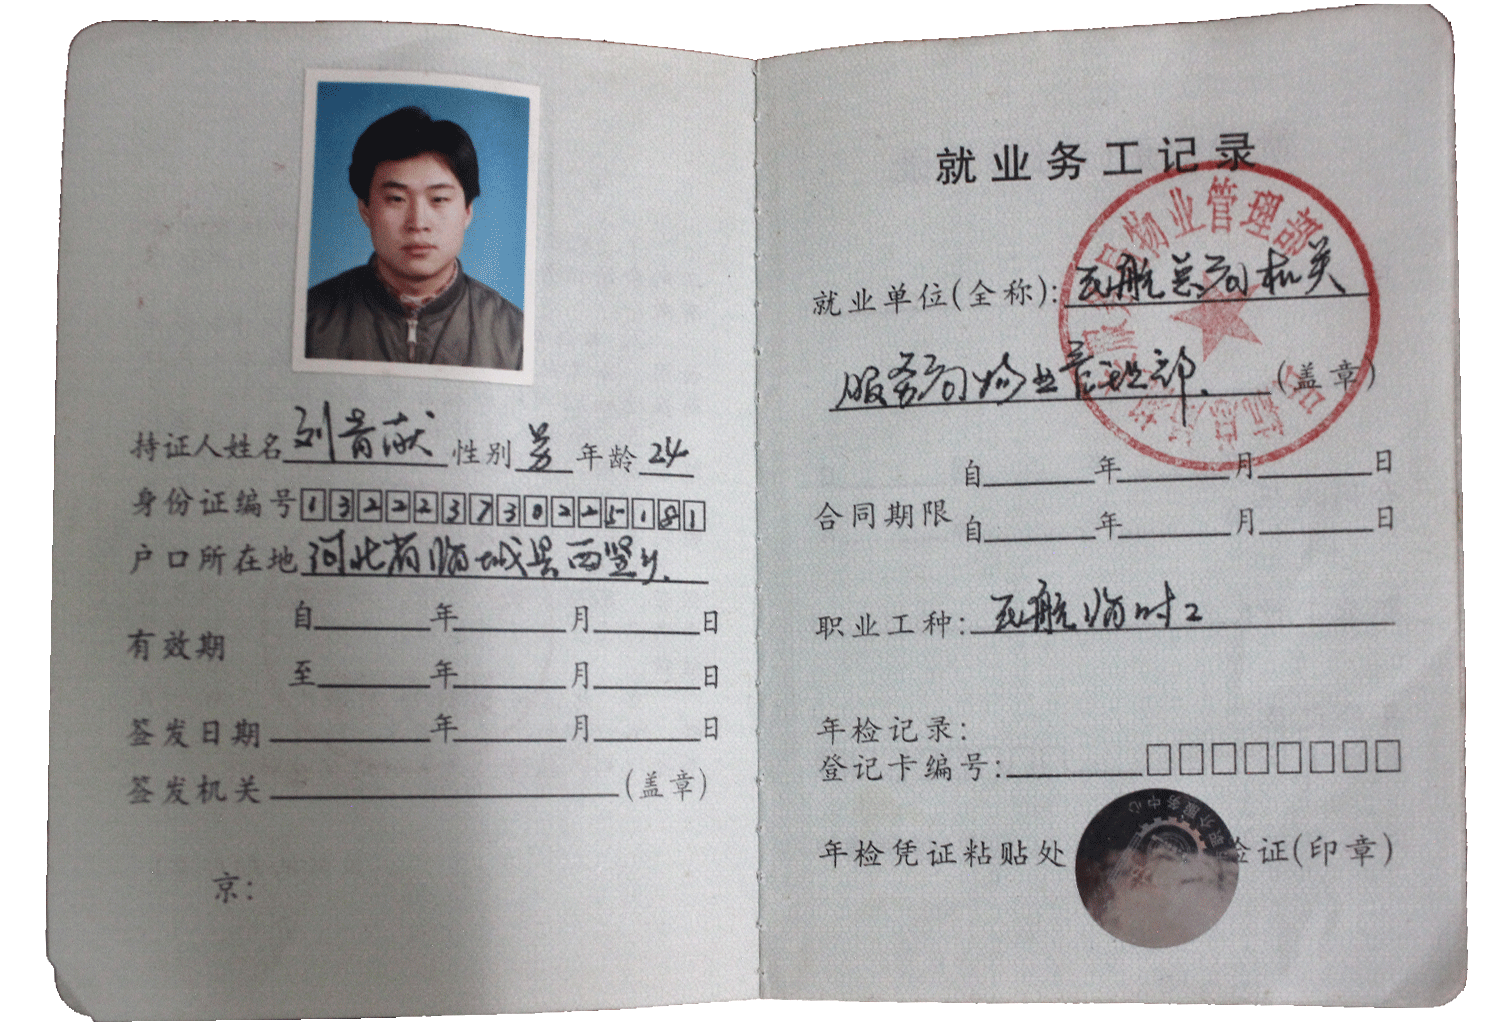 持证人姓名 刘青献 性别 男 年龄 24
身份证编号 132223730225181
户口所在地 河北省临城县西竖乡
有效期
自 年 月 日
至 年 月 日
签发日期 年 月 日
签发机关 (盖章)
京:
就业务工记录
就业单位(全称): 民航总局机关
服务局物业管理部. (盖章)
物业管理部
合同期限
自 年 月 日
自 年 月 日
职业工种: 民航临时工
年检记录:
登记卡编号:
年检凭证粘贴处 验证(印章)
介服务中心